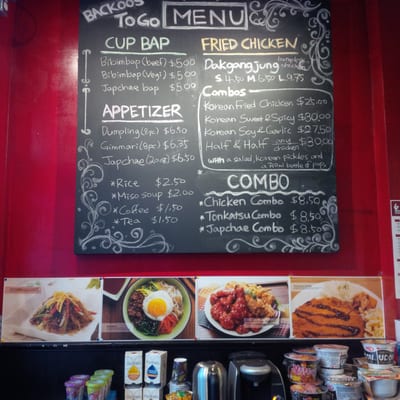 BACKOOS
TO GO MENU
CUP BAP
Bibimbap (beef) $5.00
Bibimbap (vegi) $5.00
Japchae bap $5.00
APPETIZER
Dumpling (8pc) $6.50
Gimmari (8pc) $6.75
Japchae (20oz) $6.50
*Rice $2.50
*Miso soup $2.00
*Coffee $1.50
*Tea $1.50
FRIED CHICKEN
Dakgangjung
S 4.50 M 6.50 L 9.75
Combos
Korean Fried Chicken $25.00
Korean Sweet & Spicy $30.00
Korean Soy & Garlic $27.50
Half & Half any chicken $30.00
with a salad, Korean pickles and
a bottle of pop
COMBO
*Chicken Combo $8.50
*Tonkatsu Combo $8.50
*Japchae Combo $8.50